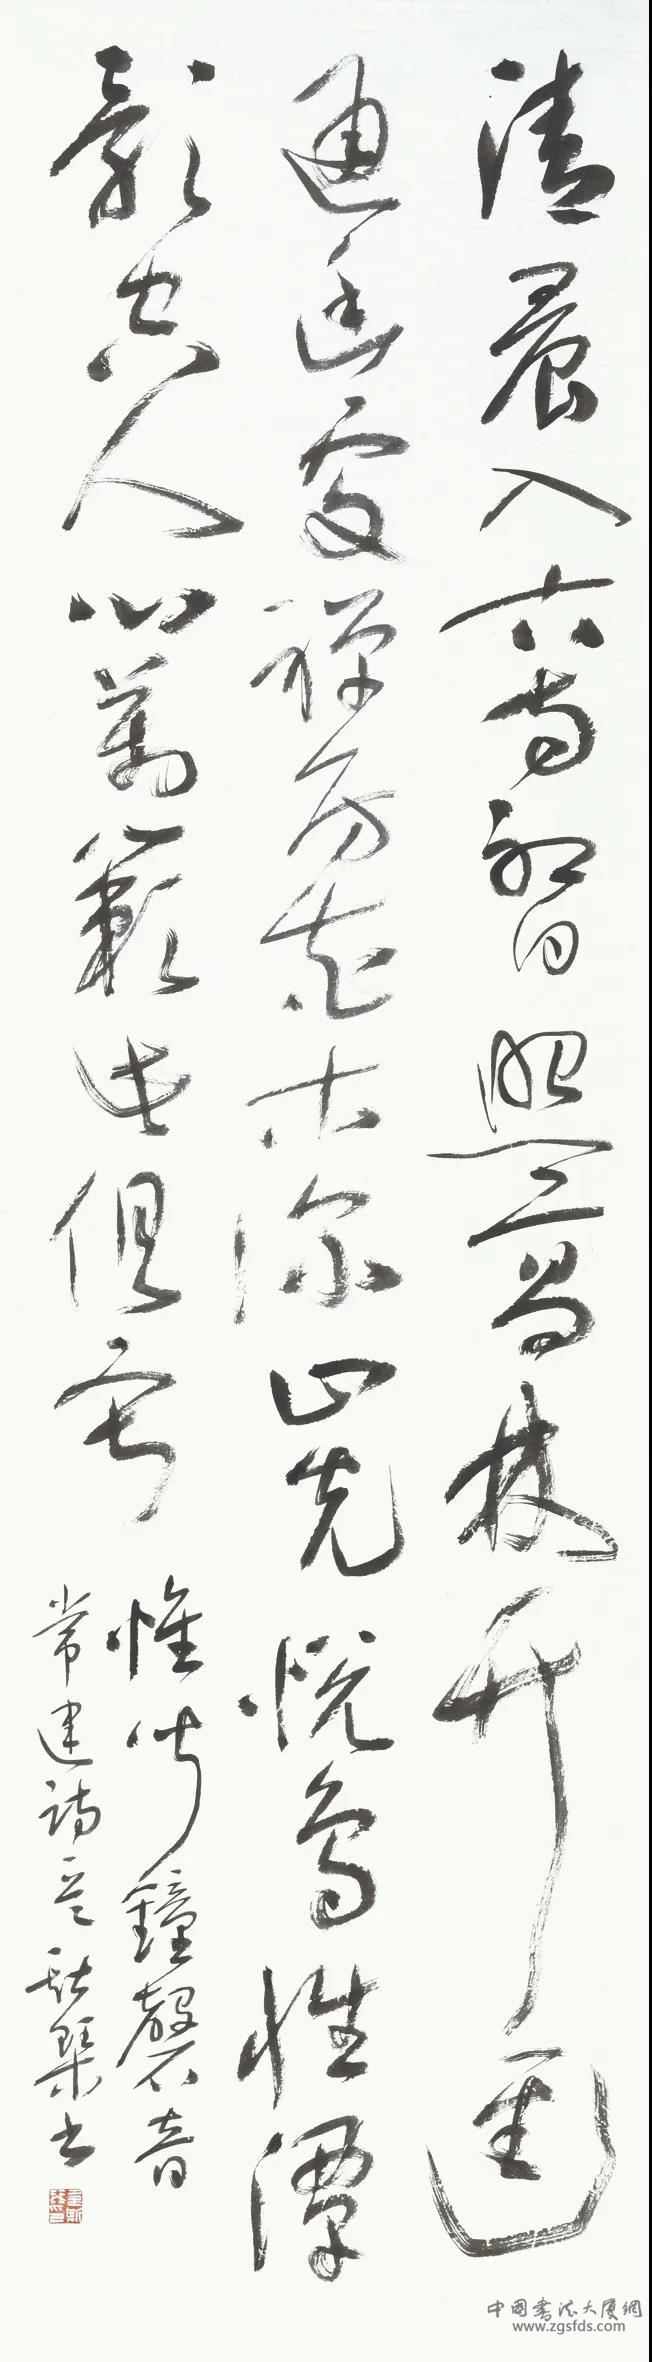 清晨入古寺初日照高林竹逕
通幽處禅房花木深山光悦鳥性潭
影空人心萬籟此俱寂
惟聞鐘磬音
常建詩 琴书
中国书法大厦網
www.zgsfds.com